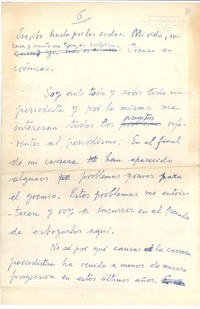 5
Escribo hasta por los codos. Mi vida, mi
casa y cuanto me
Pienso en
crónicas.
Soy ante todo y sobre todo un
periodista y por lo mismo me
interesan todos los asuntos refe-
rentes al periodismo. En el final
de mi carrera han aparecido
algunos problemas graves para
el gremio. Estos problemas me entris-
tecen y voy a incurrir en el pecado
de esbozarlos aquí.
No sé por qué causas la carrera
periodística ha venido a menos de manera
progresiva en estos últimos años,